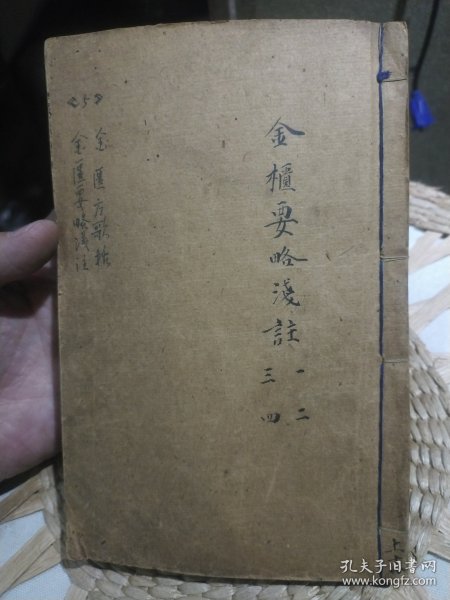 金櫃要略淺註
一二
三四
《5》
金匱方歌括
金匱要略浅注
上
孔夫子旧书网
www.kongfz.com